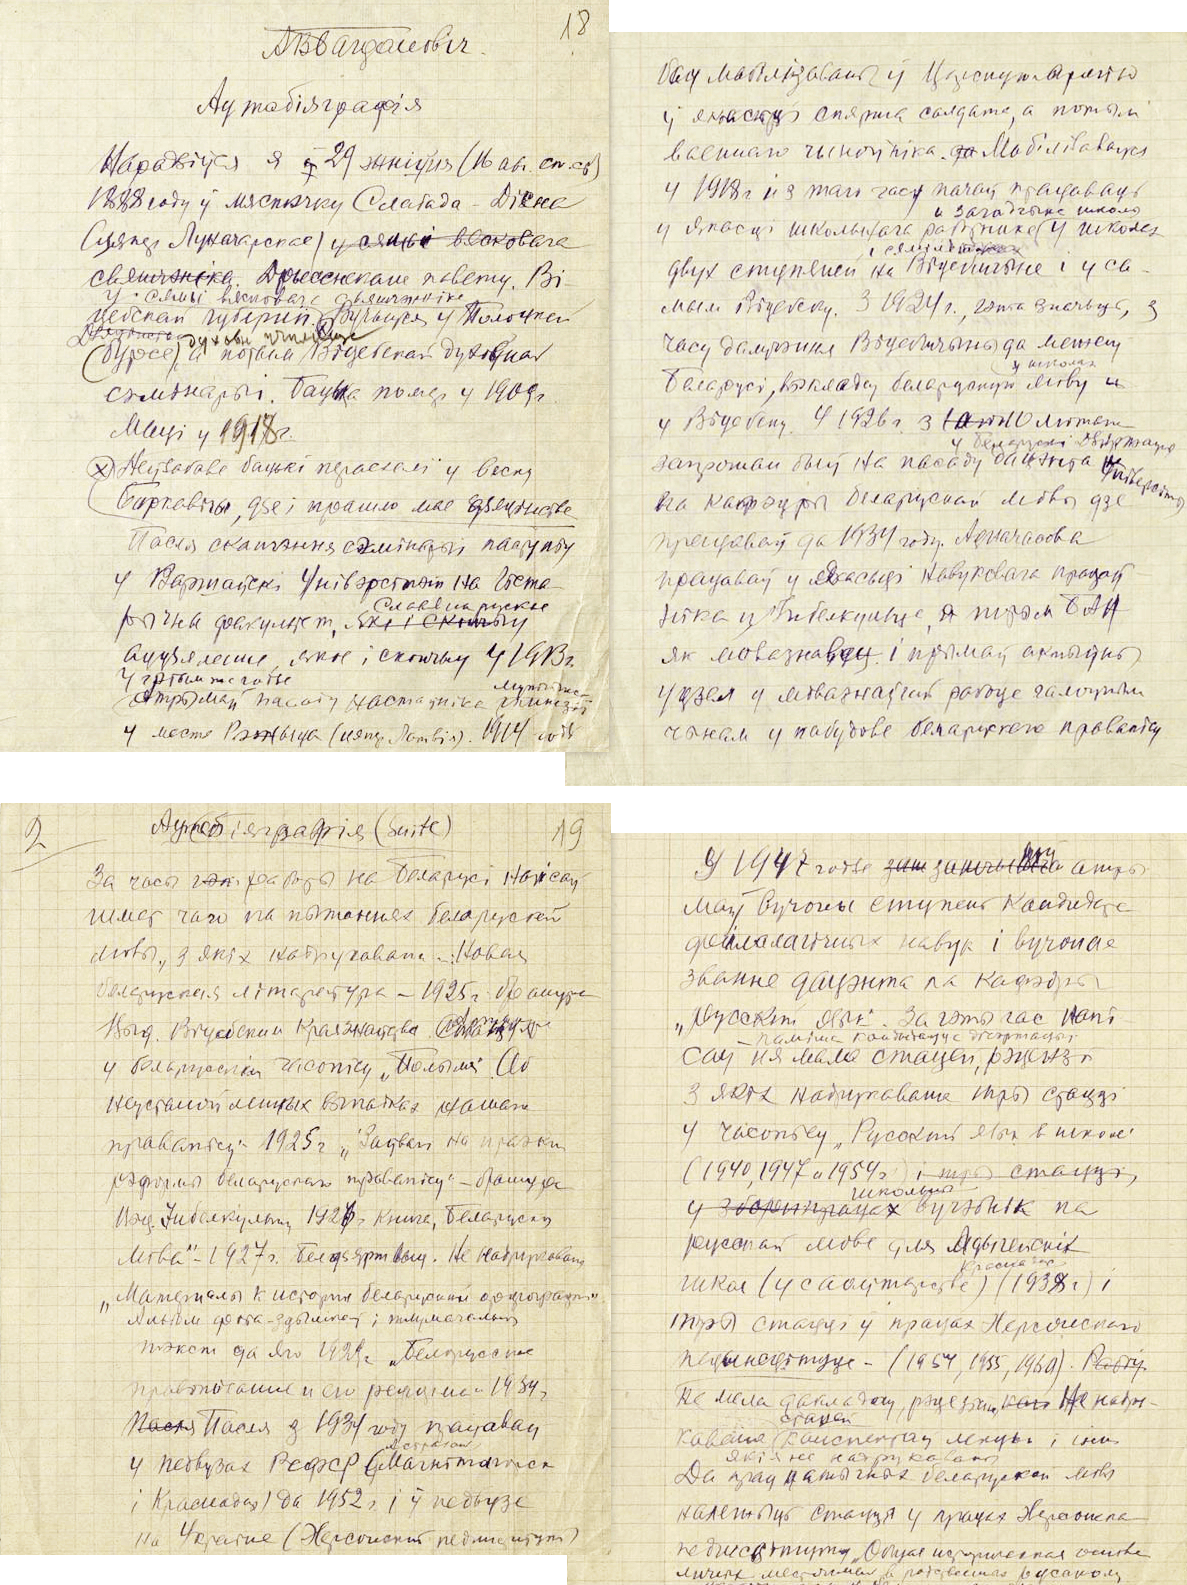 18
А В Багдановіч.
Аутабіяграфія
Нарадзіўся я 29 жніўня (16 ав. ст. ст)
1888 году ў мястэчку Слабада - Дісна
(цяпер Луначарскае) у сямьі вясковага
свяшчэніка. Дрысенскаго павету, Ві-
у сямьі вясковаго свяшчэніка
цебскай губерніі. Вучыўся ў Полоцкай
духоўн вучылішче
(бурсе), а потым Віцебскай духоўнай
сэмінарыі. Бацька помер у 1909 г.
Маці у 1918 г.
Неўзабаве бацькі пераехалі у вёску
Борковічы, дзе і прошло мае дзяцінства
Пасля сканчэння сэмінарыі паступіў
у Варшаўскі Універсітэт на Гіста-
Славяна рускае
рычны факультэт, які і скончыў
аддзяленне, якое і скончыў у 1913 г.
У гэтым же годзе
атрымаў пасаду настаўніка гімназіі
у месте Рэжыца (цяпер Латвія). 1914 годзе
быў мабілізаваны ў Царскую армію
ў якасці спярша салдата, а потым
ваеннаго чыноўніка. Мабілізаваўся
у 1918 г и з таго часу пачаў працаваць
и загадчыка школы
у якасці школьнага работніка у школах
і сямілетках
двух ступеней на Віцебшчыне і у са-
мым Віцебску. З 1924 г., гэта значыць, з
часу далучэння Віцебшчыны да межаў
у школах
Беларусі, выкладаў беларускую мову и
у Віцебску. У 1926 г з 10 лютага
у Беларускі Дзяржаўн
запрошан быў на пасаду дацэнта
Універсітэт
на кафэдры беларускай мовы дзе
працаваў да 1931 году. Адначасова
працаваў у якасьці навуковага працаў
ніка у Інбелкульце, а потым БАН
як мовазнавец і прымаў актыўны
удзел у мовазнаўчай рабоце галоўным
чынам у пабудове беларускаго правапісу
2
Аутабіяграфія (suite)
19
За часы работы на Беларусі напісаў
шмат чаго па пытаннях беларускай
мовы, з якіх надрукавана - Новая
беларуская літаратура - 1925 г. брашура
Выд. Віцебскаи Краязнаўства
у беларускім часопісу „Полымя" Аб
неустаноўленых выпадках нашага
правапісу" 1925 г „Заувагі на праэкт
рэформы беларускаго правапісу" - брашура
Изд. Інбелкульту 1926 г книга, Беларуская
мова" - 1927 г. Белдзяржвыд. Не надрукованы
„Материалы к истории беларускай орфографии"
Альбом фота-здымкаў і тлумачальны
тэкст да яго 1929 г „Белорусское
правописание и его реформа 1934 г
Пасля Пасля з 1931 году працаваў
Астрахани
у педвузах РСФСР (Магнітагорск
і Краснодар) да 1952 г. і ў педвузе
на Украіне (Херсонский педінстітут)
У 1947 годзе атры
маў вучоны ступень Кандидата
філалагічных навук і вучонае
званне дацэнта па кафэдры
„Русский язык". За гэты час напі
- паміма кандідацкае дісертацыі
саў ня мала стацей, рэцэнзій
з якіх надрукавана тры стацці
у часопісу „Русский язык в школе"
(1940, 1947 и 1954 г) и тры стацці,
школьный
у зборн. працах вучэбнік па
рускай мове для Адыгейскіх
Краснадар
школ (у сааўтарстве) (1938 г) і
тры стацці у працах Херсонскаго
педынстітута - (1954, 1955, 1960).
не мала дакладаў, рэцэнзий, Не надру-
стацей
кавана канспектаў лекцый і інш
якія не надрукованы
Да прац датычных беларускай мовы
належыць стацця у працах Херсонска
педінстытуту „Общая историческая основа
личных местоимений в родственных русскому